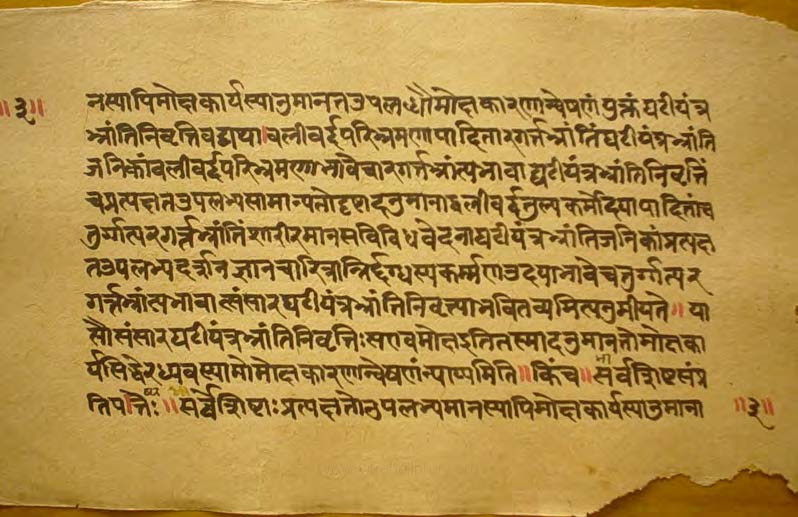 ॥३॥ नस्यापिमोक्षकार्यस्यानुमानतउपलब्धौमोक्षकारणान्वेषणंयुक्तंघटीयंत्र
भ्रांतिनिवृत्तिवद्यथा।वलीवर्द्दपरिभ्रमणापादितारगर्त्तभ्रांतिंघटीयंत्रभ्रांति
जनिकांवलीवर्द्दपरिभ्रमणाभावेचारगर्त्तभ्रांत्यभावाद्घटीयंत्रभ्रांतिनिवृत्तिं
चप्रत्यक्षतउपलभ्यसामान्यतोदृष्टादनुमानाद्वलीवर्द्दतुल्यकर्मोदयापादितांच
तुर्गत्यरगर्त्तभ्रांतिंशारीरमानसविविधवेदनाघटीयंत्रभ्रांतिजनिकांप्रत्यक्ष
तउपलभ्यदर्शनज्ञानचारित्राग्निर्द्दग्धस्यकर्म्मणउदयाभावेचतुर्गत्यर
गर्त्तभ्रांत्यभावात्संसारघटीयंत्रभ्रांतिनिवृत्त्याभवितव्यमित्यनुमीयते॥या
सौसंसारघटीयंत्रभ्रांतिनिवृत्तिःसएवमोक्षइतितस्मादनुमानतोमोक्षका
र्यसिद्धेरध्यवस्यामोमोक्षकारणान्वेषणंन्याय्यमिति॥किंच॥सर्वशिष्टसंप्र
तिपत्तेः॥सर्वेशिष्टाःप्रत्यक्षतोनुपलभ्यमानस्यापिमोक्षकार्यस्यानुमाना ॥३॥